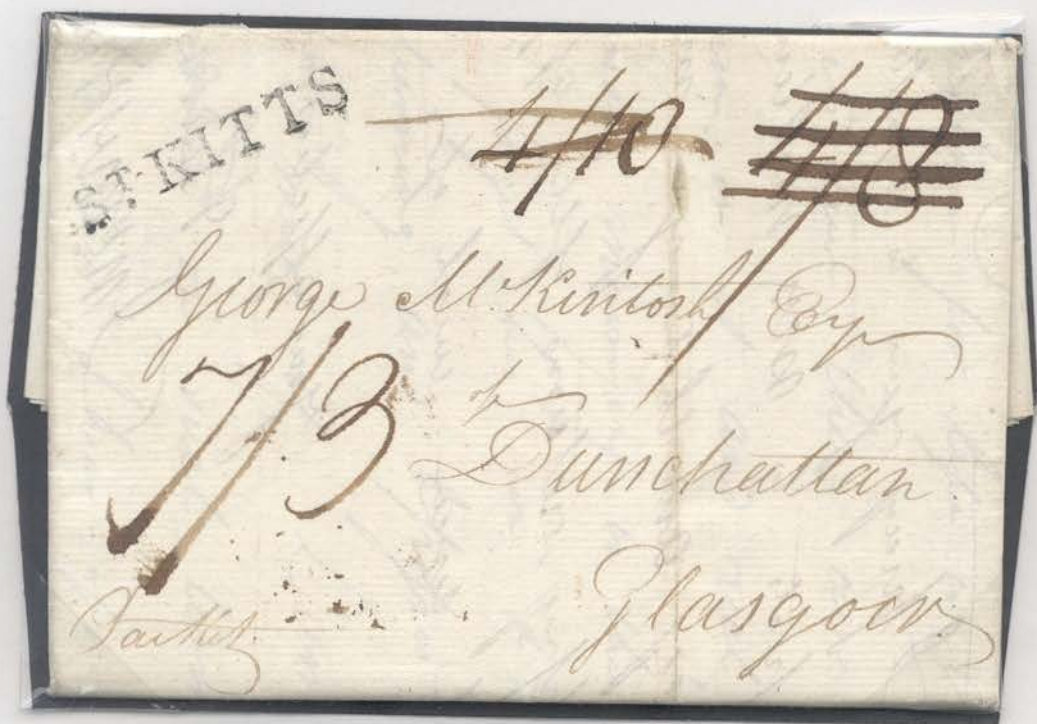 ST. KITTS
4/10
4/8
George McKintosh Esqr
7/3
of
Dunchattan
Glasgow
Packet